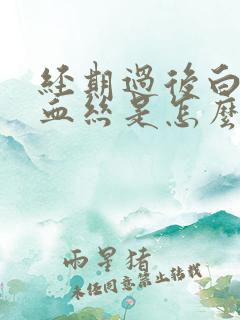 經期過後白
血絲是怎麼
雨星猪
未经同意禁止转载